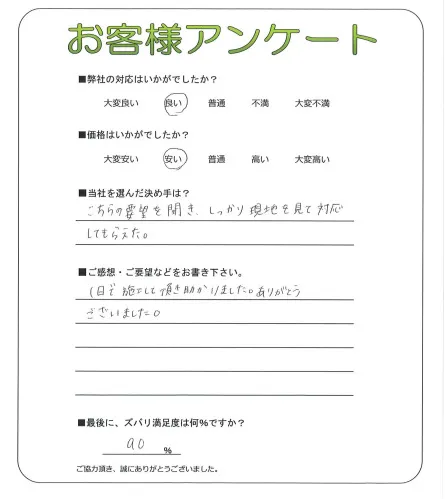 お客様アンケート
■弊社の対応はいかがでしたか?
大変良い 良い 普通 不満 大変不満
■価格はいかがでしたか?
大変安い 安い 普通 高い 大変高い
■当社を選んだ決め手は?
こちらの要望を聞き、しっかり現地を見て対応
してもらえた。
■ご感想・ご要望などをお書き下さい。
1日で施工して頂き助かりました。ありがとう
ございました。
■最後に、ズバリ満足度は何%ですか?
90 %
ご協力頂き、誠にありがとうございました。